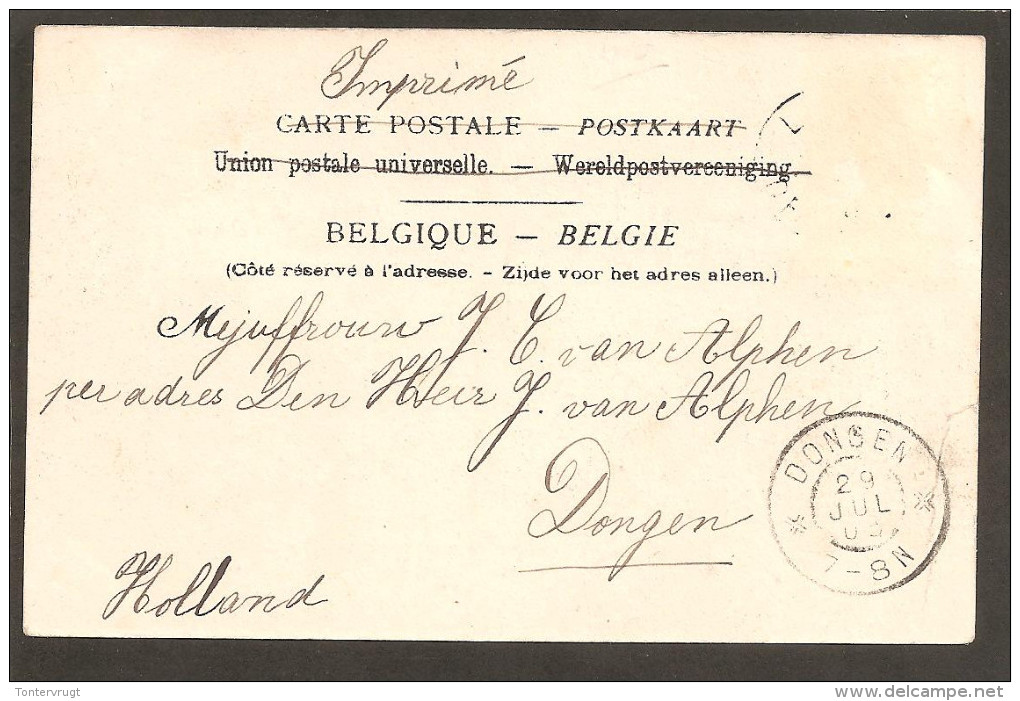 Imprimé
CARTE POSTALE — POSTKAART
Union postale universelle. — Wereldpostvereeniging.
BELGIQUE — BELGIE
(Côté réservé à l'adresse. - Zijde voor het adres alleen.)
Mejuffrouw J. C. van Alphen
per adres Den Heer J. van Alphen
Dongen
Holland
DONGEN
29
JUL
7-8N
Tontervrugt
www.delcampe.net